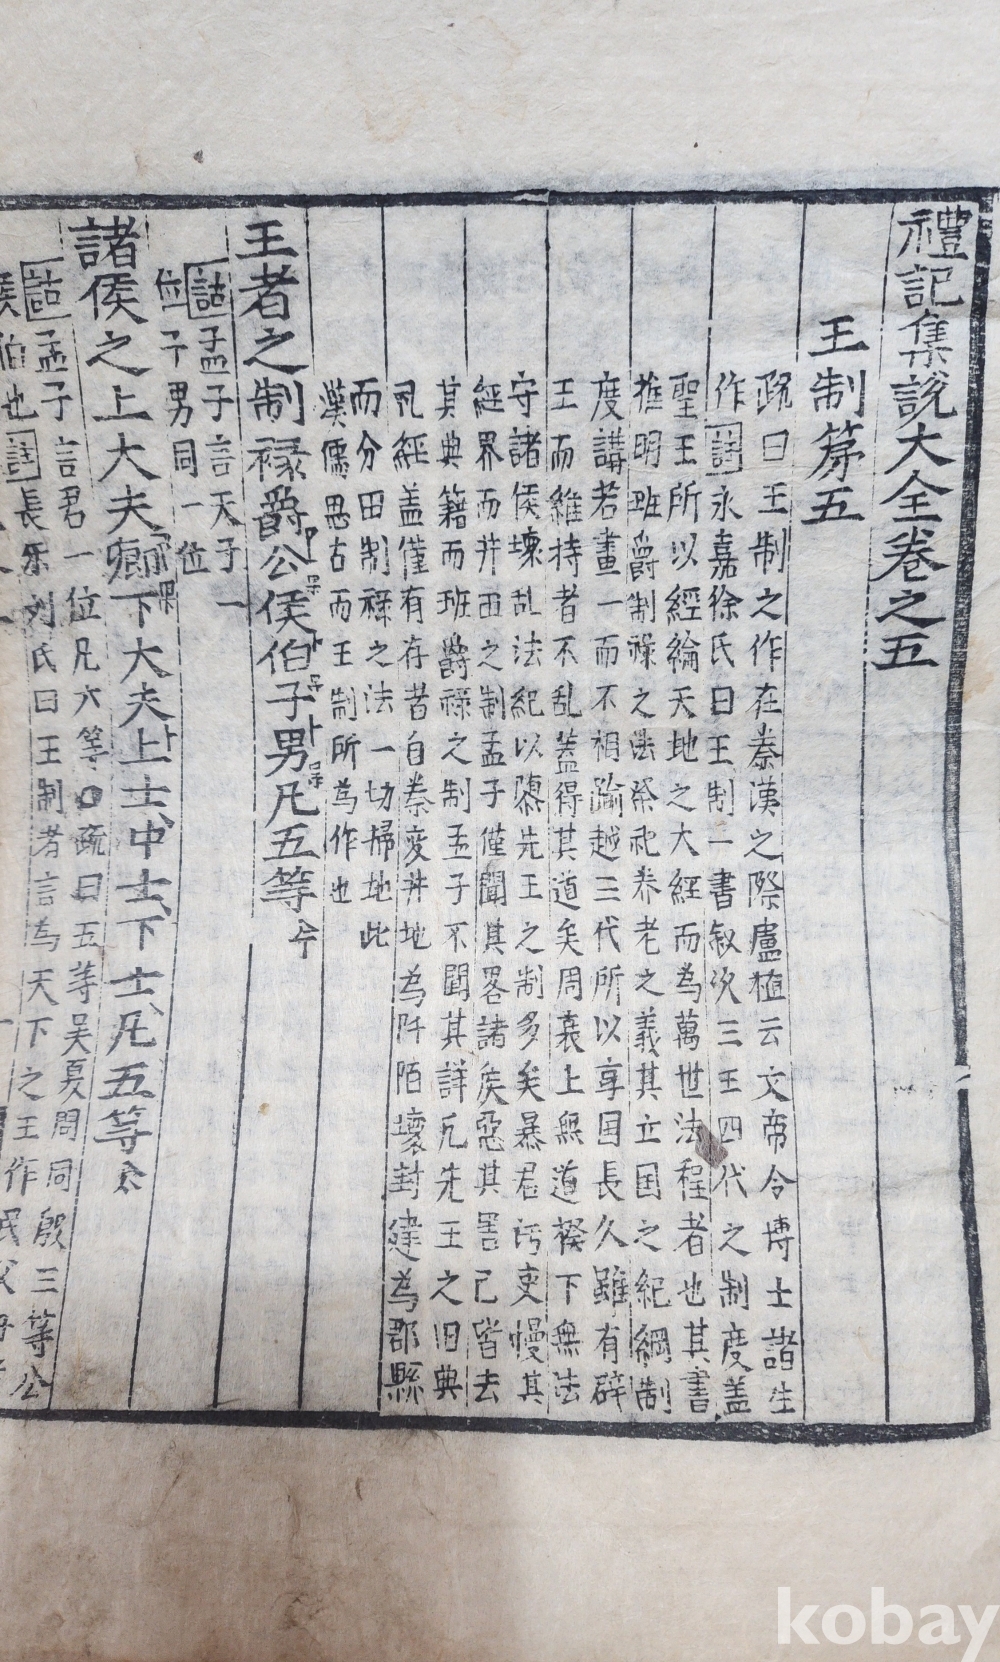 禮記集說大全卷之五
王制第五
疏曰王制之作在秦漢之際盧植云文帝令博士諸生
作 詳永嘉徐氏曰王制一書叙次三王四代之制度盖
聖王所以經綸天地之大經而為萬世法程者也其書
推明班爵制祿之法祭祀养老之義其立国之紀綱制
度講若畫一而不相踰越三代所以享国長久雖有辟
王而維持者不乱蓋得其道矣周衰上無道揆下無法
守諸侯壞乱法紀以隳先王之制多矣暴君污吏慢其
經界而井田之制孟子僅聞其畧諸侯惡其害己皆去
其典籍而班爵祿之制孟子不聞其詳凡先王之旧典
礼經盖僅有存者自秦变井地為阡陌壞封建為郡縣
而分田制祿之法一切掃地此
漢儒思古而王制所為作也
王者之制祿爵公侯伯子男凡五等
詰孟子言天子一
位子男同一位
諸侯之上大夫卿下大夫上士中士下士凡五等
詰孟子言君一位凡六等○疏曰五等吴夏問同殷三等公
侯伯也 長乐刘氏曰王制者言為天下之王作民父母